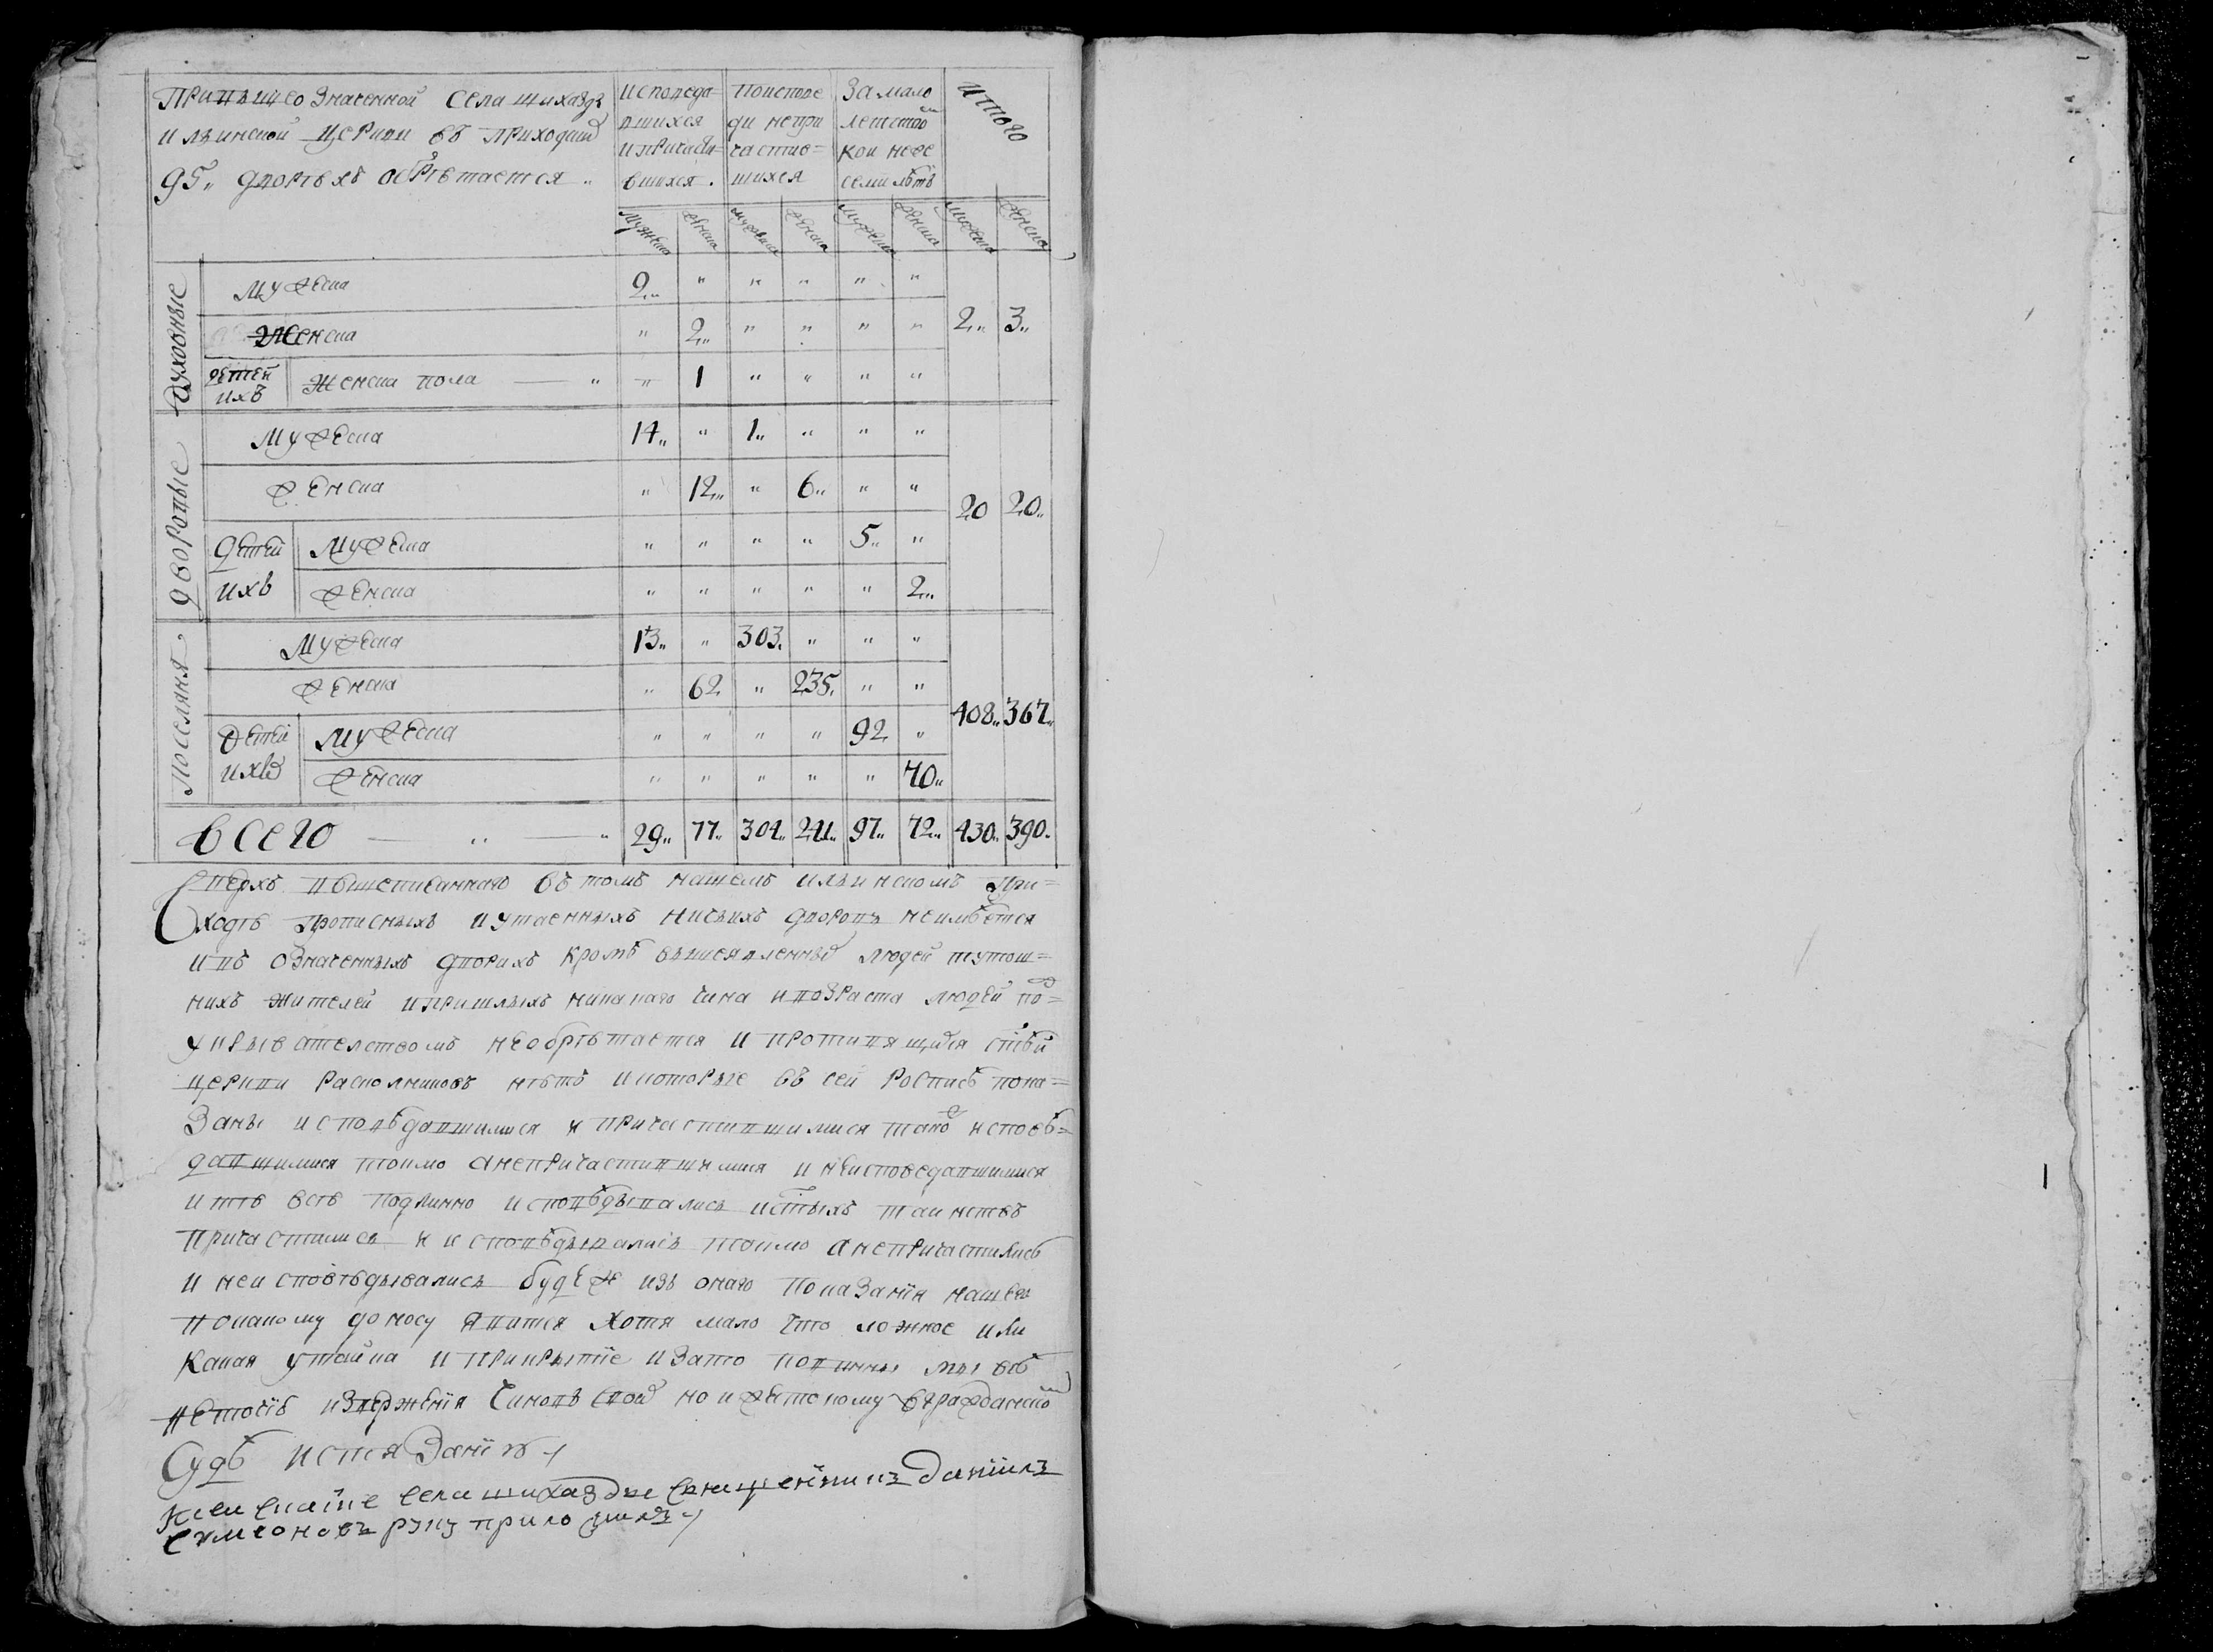 При вышеозначенной села шихаздъ
ильинской церкви въ приходѣ
95„ дворѣхъ обрѣтается „
исповеда
вшихся
и причасти=
вшихся.
поиспове
ди непри
частив=
шихся
за мало
летством
кои нѣсе
семи лѣтъ
итого
мужеска женска мужеска женска мужеска женска мужеска женска
духовные
мужеска 2„ „ „ „ „ „
женска „ 2„ „ „ „ „ 2„ 3„
детей ихъ женска пола — „ „ 1 „ „ „ „
дворовые
мужеска 14„ „ 1„ „ „ „
женска „ 12„ „ 6„ „ „ 20 20„
детей ихъ мужеска „ „ „ „ 5„ „
женска „ „ „ „ „ 2„
поселяня
мужеска 13„ „ 303. „ „ „
женска „ 62 „ 235. „ „ 408„ 367„
детей ихъ мужеска „ „ „ „ 92 „
женска „ „ „ „ „ 70„
всего — „ — „ 29„ 77„ 304„ 241„ 97„ 72„ 430„ 390„
Сверхъ вышеписаннаго въ томъ нашемъ ильинскомъ при=
ходѣ прописныхъ и утаенныхъ ничьихъ дворовъ неимѣется
и въ означенныхъ дворихъ кромѣ вышеявленныхъ людей тутош=
нихъ жителей и пришлыхъ никакого чина и возраста людей по=
укрывателствомъ необрѣтается и противящихся стѣй
церкви расколниковъ нѣтъ и которые въ сей росписѣ пока=
заны исповѣдавшимися и причастившимися такоже исповѣ=
давшимися токмо а непричастившимися и неисповедавшимися
и тѣ всѣ подлинно исповѣдывались и стыхъ таинствъ
причастились и исповѣдывались токмо а непричастились
и неисповѣдывались будеже изъ онаго показанія нашего
покакому доносу явится хотя мало что ложное или
какая утайка и прикрытіе и зато повинны мы не
точію изверженія чиновъ своихъ но и жестокому въ гражданском
судѣ истязанію
к сей скаске села шихазды священникъ даніилъ
симеоновъ руку приложилъ